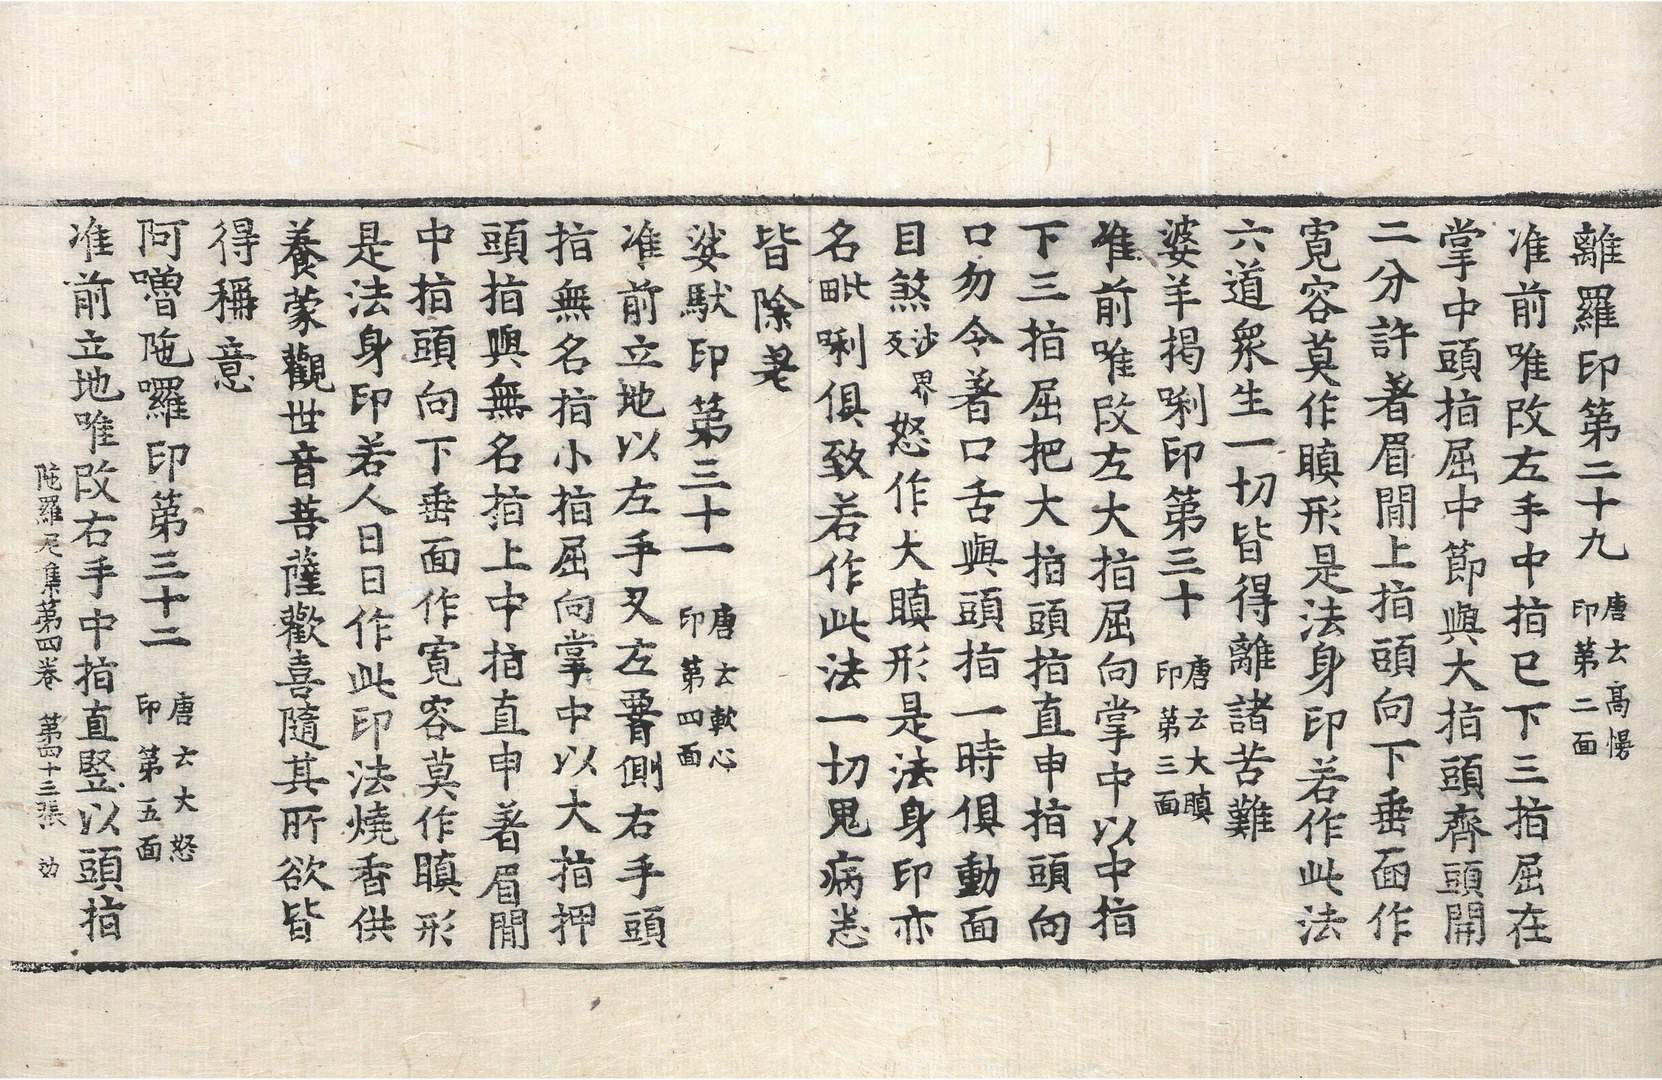 離羅印第二十九 唐云高慢印第二面
准前唯改左手中指已下三指屈在
掌中頭指屈中節與大指頭齊頭開
二分許著眉間上指頭向下垂面作
寬容莫作瞋形是法身印若作此法
六道衆生一切皆得離諸苦難
婆羊揭唎印第三十 唐云大瞋印第三面
准前唯改左大指屈向掌中以中指
下三指屈把大指頭指直申指頭向
口勿令著口舌與頭指一時俱動面
目煞沙界反怒作大瞋形是法身印亦
名毗唎俱致若作此法一切鬼病悉
皆除差
娑馱印第三十一 唐云軟心印第四面
准前立地以左手叉左䏶側右手頭
指無名指小指屈向掌中以大指押
頭指與無名指上中指直申著眉間
中指頭向下垂面作寬容莫作瞋形
是法身印若人日日作此印法燒香供
養蒙觀世音菩薩歡喜隨其所欲皆
得稱意
阿嚕陁囉印第三十二 唐云大怒印第五面
准前立地唯改右手中指直竪以頭指
陁羅尼集第四卷 第四十三張